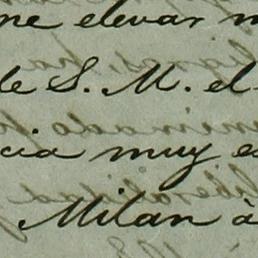 me elevar
de S. M. el
cia muy
Milan à